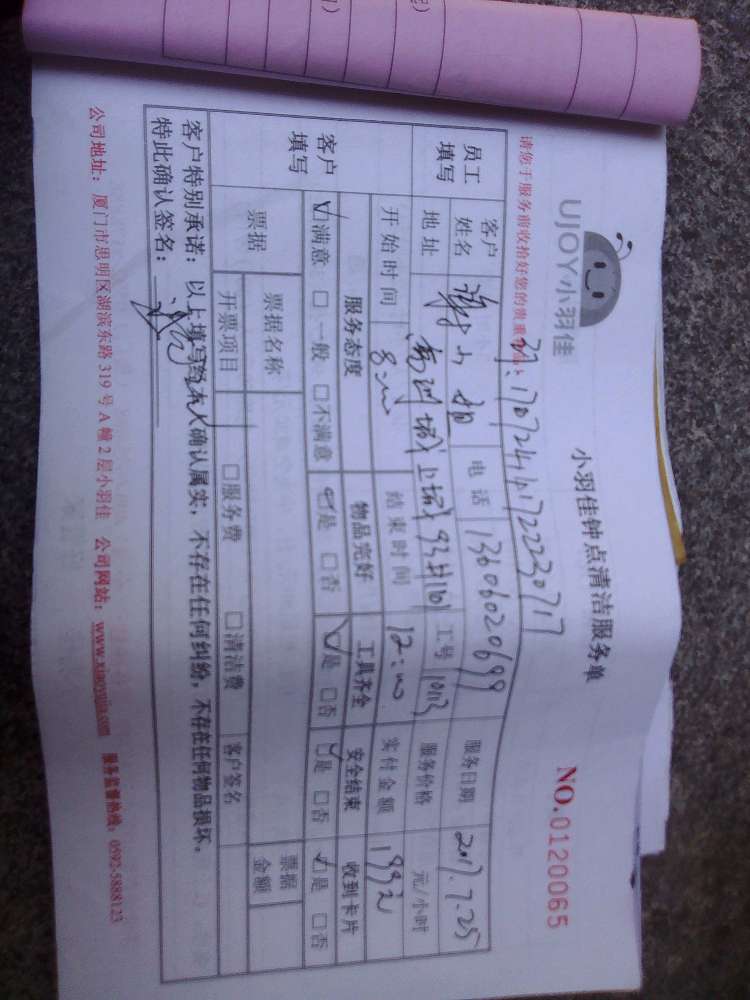 UJOY小羽佳
小羽佳钟点清洁服务单
NO.0120065
请您于服务前收拾好您的贵重
员工填写
客户姓名
电话 13606020699
服务日期 2017.7.25
地址
工号 10113
服务价格 元/小时
开始时间 8:00
结束时间 12:00
实付金额 199元
客户填写
服务态度 物品完好 工具齐全 安全结束 收到卡片
☑满意 □一般 □不满意 ☑是 □否 ☑是 □否 ☑是 □否 ☑是 □否
票据 票据名称 票据金额
开票项目 □服务费 □清洁费 客户签名
客户特别承诺：以上填写经本人确认属实，不存在任何纠纷，不存在任何物品损坏。
特此确认签名：
公司地址：厦门市思明区湖滨东路319号A幢2层小羽佳 公司网站：www.xiaoyujia.com 服务监督热线：0592-5888123